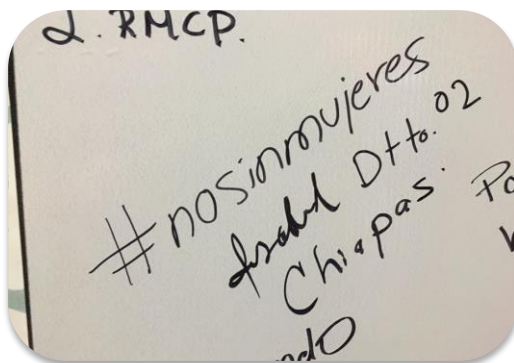 L. RMCP.
#nosinmujeres
Isabel Dtto. 02
Chiapas.
Po
ndo